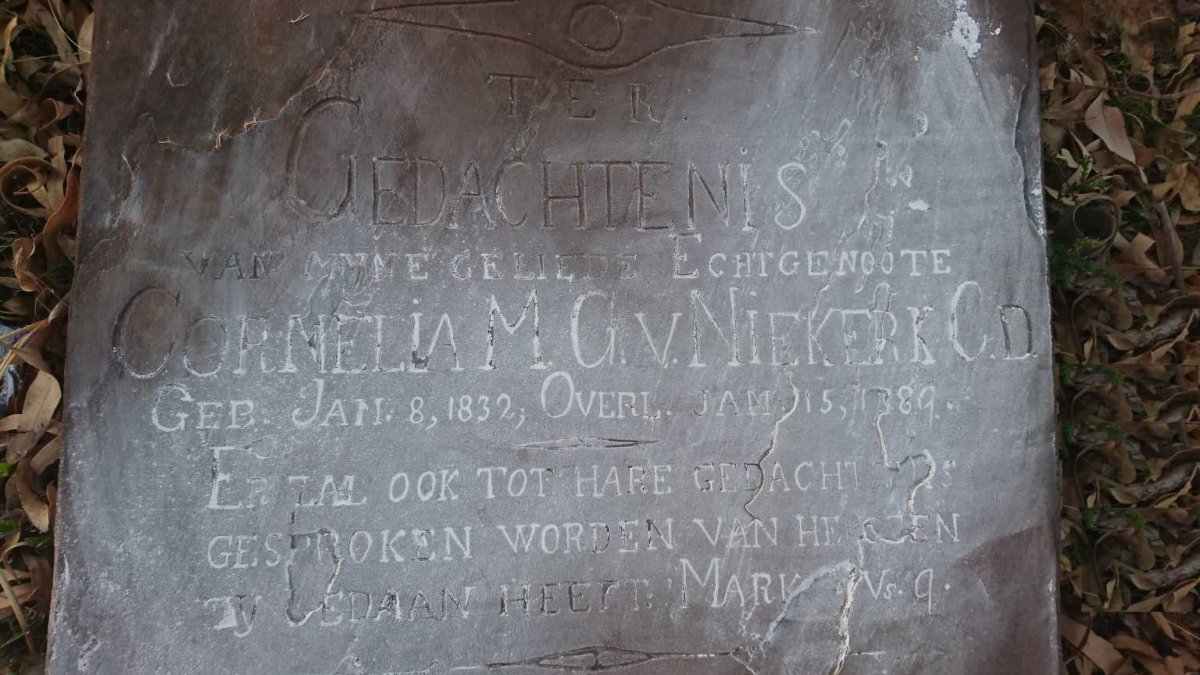 TER.
GEDACHTENIS
VAN MYNE GELIEDE ECHTGENOOTE
CORNELIA M. G. V. NIEKERK C. D.
GEB. JAN. 8, 1832, OVERL. JAN. 15, 1889.
ER ZAL OOK TOT HARE GEDACHTENIS
GESPROKEN WORDEN VAN HETGEEN
ZY GEDAAN HEEFT. MARK Vs. 9.